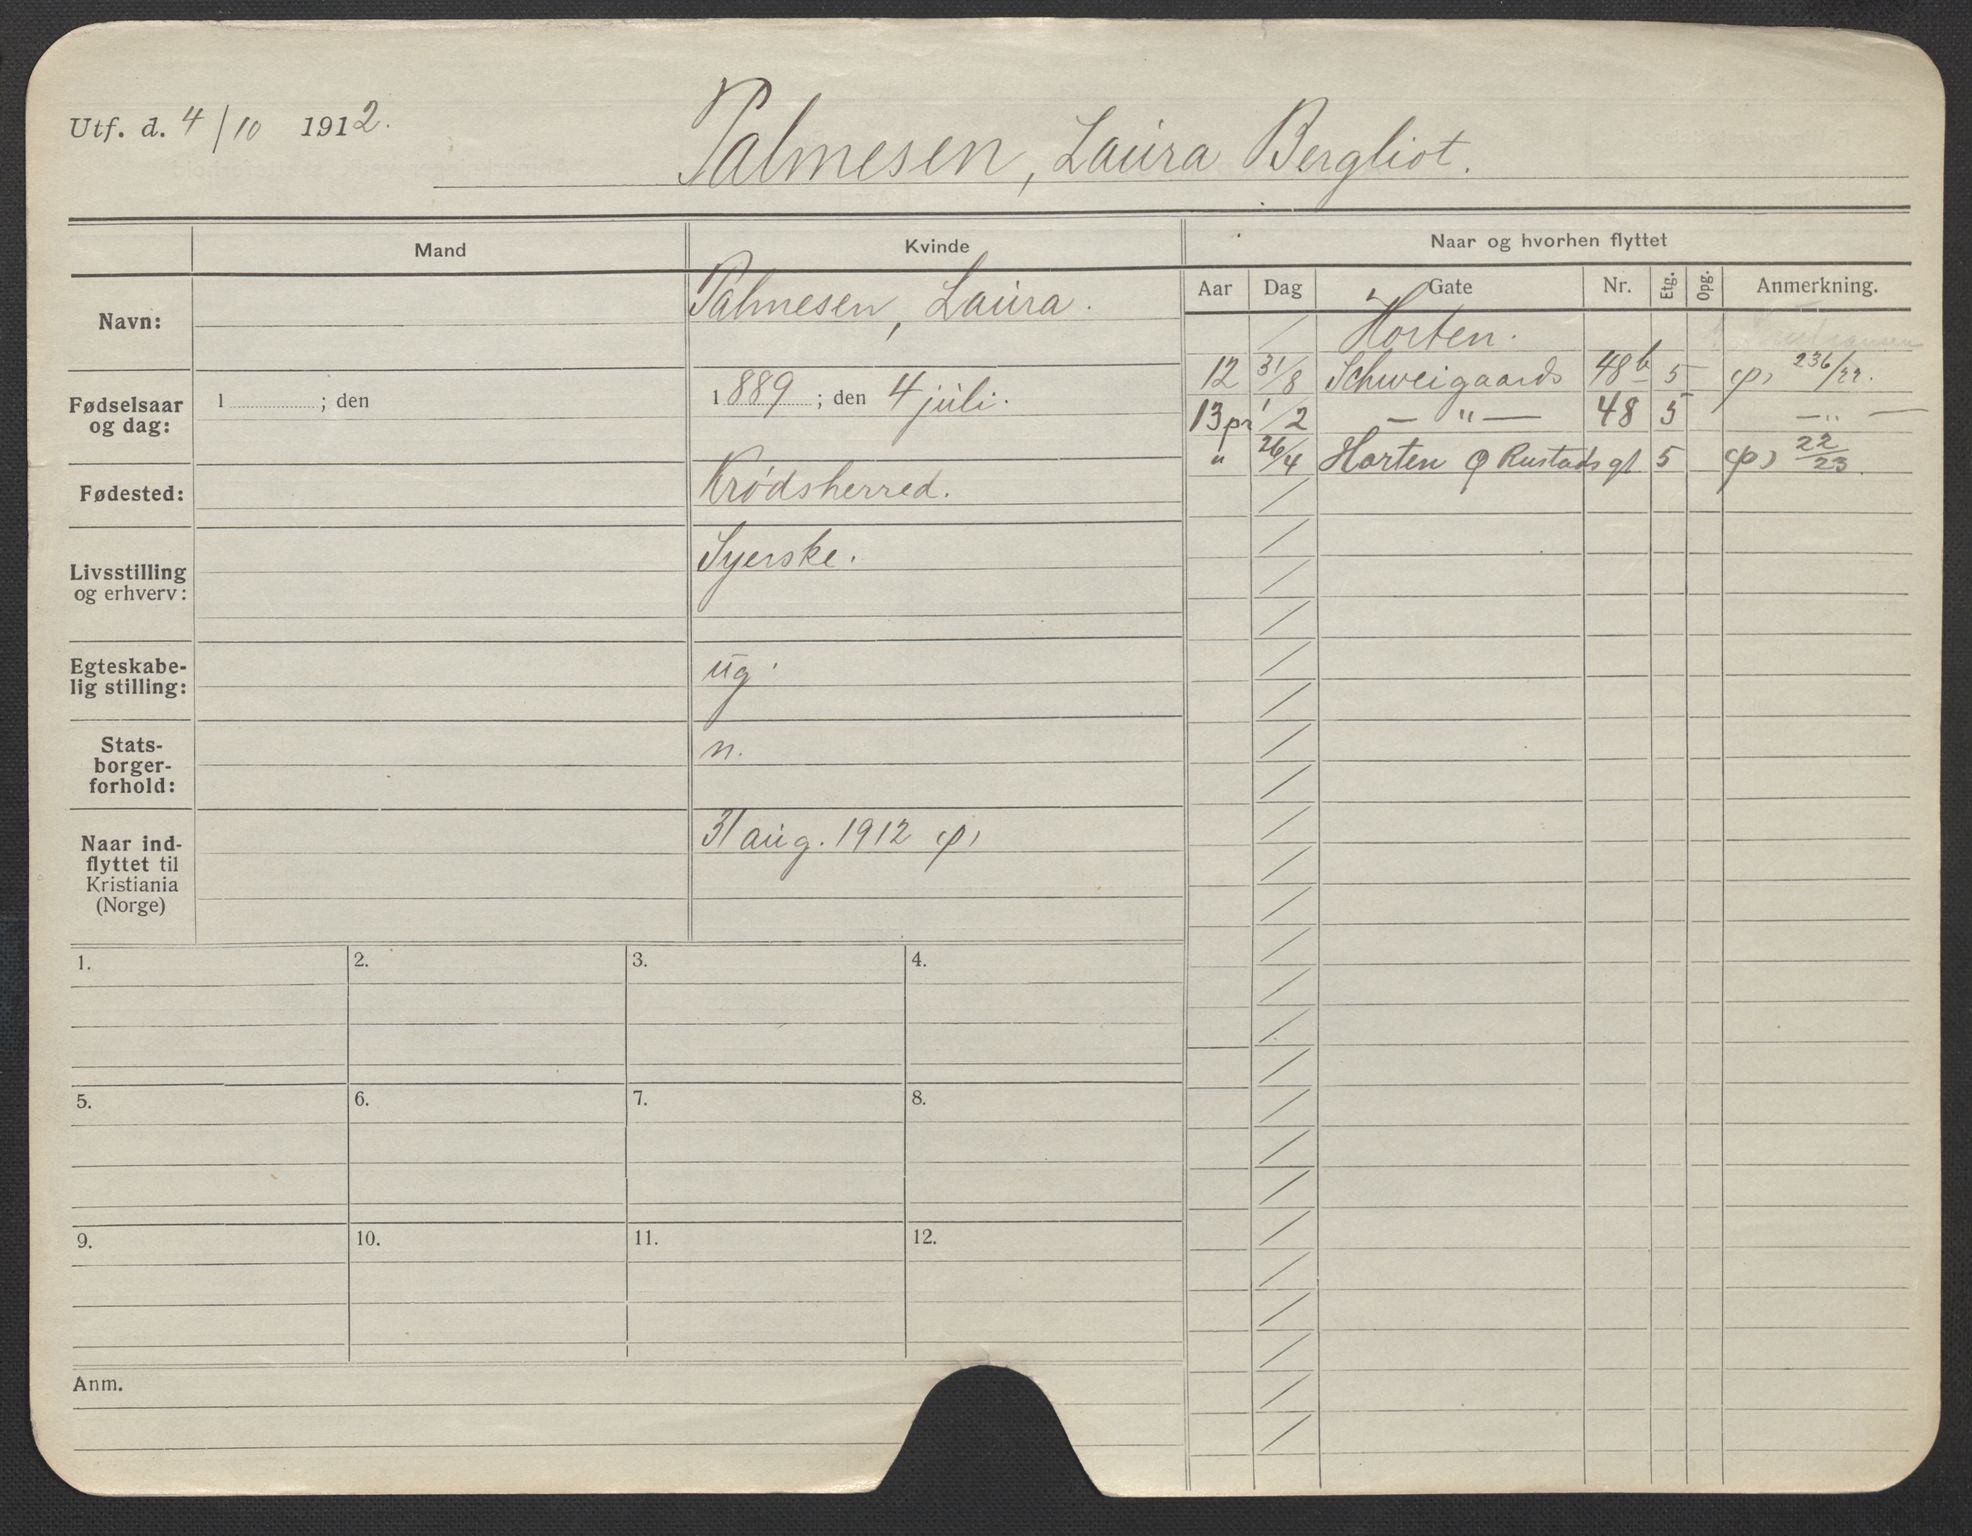 Utf. d. 4/10 1912.
Palmesen, Laura Bergliot.
Mand
Kvinde
Naar og hvorhen flyttet
Aar Dag Gate Nr. Etg. Opg. Anmerkning.
Navn:
Palmesen, Laura.
Fødselsaar og dag:
1 ; den
1889 ; den 4 juli.
Fødested:
Krødsherred.
Livsstilling og erhverv:
Syerske.
Egteskabe-
lig stilling:
ug.
Stats-
borger-
forhold:
n.
Naar ind-
flyttet til
Kristiania
(Norge)
31 aug. 1912 (p)
Horten.
12 31/8 Schweigaards 48b 5 (p) 236/22.
13 pr 1/2 — " — 48 5 — " —
" 26/4 Horten Ø Rustads gt 5 (p) 22/23.
1.
2.
3.
4.
5.
6.
7.
8.
9.
10.
11.
12.
Anm.